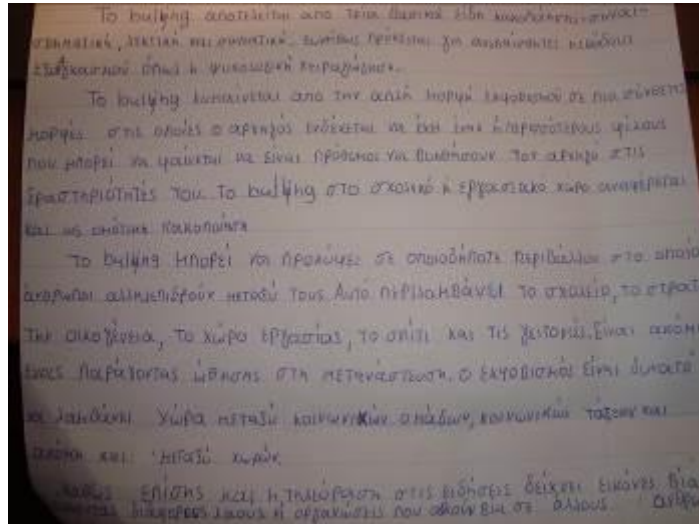 Το bullying αποτελείται από τρία βασικά είδη κακοποίησης-συναισ-
θηματική, λεκτική και σωματική. συνήθως πρόκειται για
εξαναγκασμού όπως η ψυχολογική χειραγώγηση.
Το bullying κυμαίνεται από την απλή μορφή εκφοβισμού σε πιο σύνθετες
μορφές στις οποίες ο αρχηγός ενδέχεται να έχει έναν ή περισσότερους φίλους
που μπορεί να φαίνεται να είναι πρόθυμοι να βοηθήσουν τον αρχηγό στις
δραστηριότητές του. Το bullying στο σχολικό ή εργασιακό χώρο αναφέρεται
και ως κακοποίηση
Το bullying μπορεί να προκύψει σε οποιοδήποτε περιβάλλον στο οποίο
άνθρωποι αλληλεπιδρούν μεταξύ τους. Αυτό περιλαμβάνει το σχολείο, το στρατ
την οικογένεια, το χώρο εργασίας, το σπίτι και τις γειτονιές. Είναι ακόμη
ένας παράγοντας ώθησης στη μετανάστευση. Ο εκφοβισμός είναι δυνατό
να λαμβάνει χώρα μεταξύ κοινωνικών ομάδων, κοινωνικών τάξεων και
ακόμη και μεταξύ χωρών.
καθώς επίσης και η τηλεόραση στις ειδήσεις δείχνει εικόνες βία
διάφορες λαους ή οργανώσεις που ασκούν βια σε άλλους